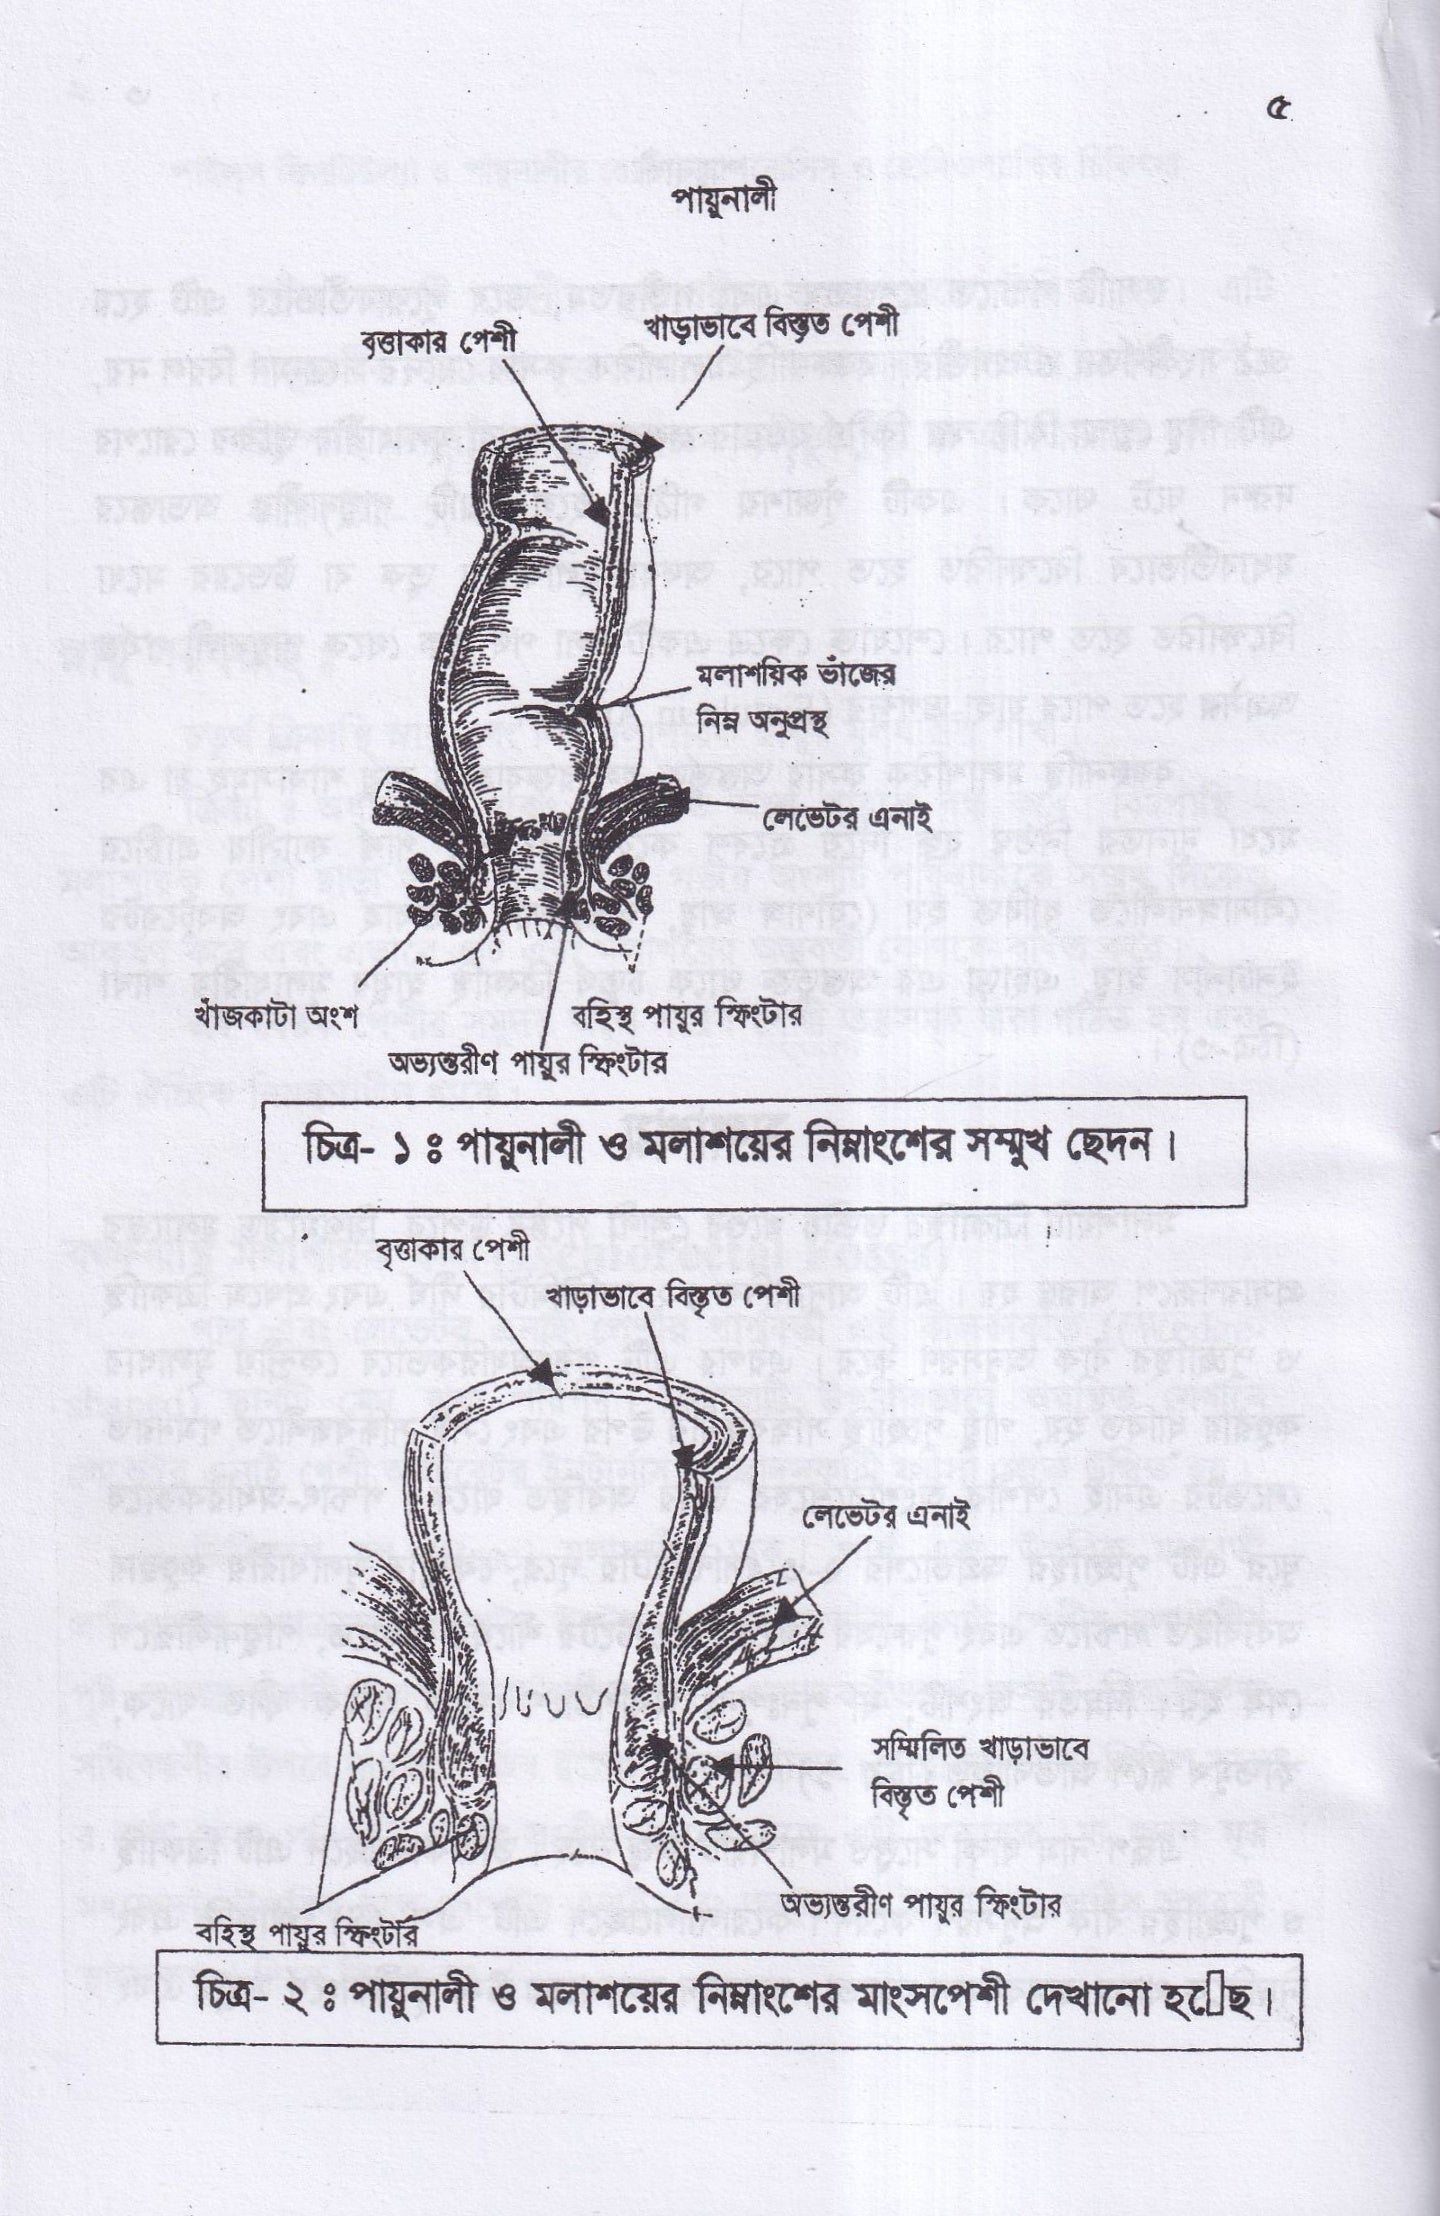 ৫
পায়ুনালী
বৃত্তাকার পেশী
খাড়াভাবে বিস্তৃত পেশী
মলাশয়িক ভাঁজের
নিম্ন অনুপ্রস্থ
লেভেটর এনাই
খাঁজকাটা অংশ
বহিস্থ পায়ুর স্ফিংটার
অভ্যন্তরীণ পায়ুর স্ফিংটার
চিত্র- ১ ঃ পায়ুনালী ও মলাশয়ের নিম্নাংশের সম্মুখ ছেদন।
বৃত্তাকার পেশী
খাড়াভাবে বিস্তৃত পেশী
লেভেটর এনাই
সম্মিলিত খাড়াভাবে
বিস্তৃত পেশী
অভ্যন্তরীণ পায়ুর স্ফিংটার
বহিস্থ পায়ুর স্ফিংটার
চিত্র- ২ ঃ পায়ুনালী ও মলাশয়ের নিম্নাংশের মাংসপেশী দেখানো হ▯েছ।